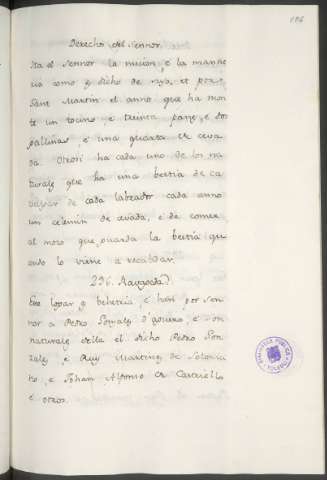 186
Derecho del sennor.
Ha el sennor la nucion, e la manne
ria como q dicho de suso, et por
Sant Martin el anno que ha mon
te un tocino e treinta panes, e dos
gallinas, e una quarta de ceva
da. Otrosi ha cada uno de los na
turales que ha una bestia de ca
balgar de cada labrador cada anno
un celemin de cevada, e de comer
al mozo que guarda la bestia qu
ando lo viene a recabdar.
296.
Este logar q behetria, e han por sen
nor a Pedro Gonzalez d'aguero, e son
naturales della el dicho Pedro Gon
zalez, e Ruy Martinez de Solorza
no, e Johan Alfonso de Castriello
e otros.
BIBLIOTECA PUBLICA
TOLEDO